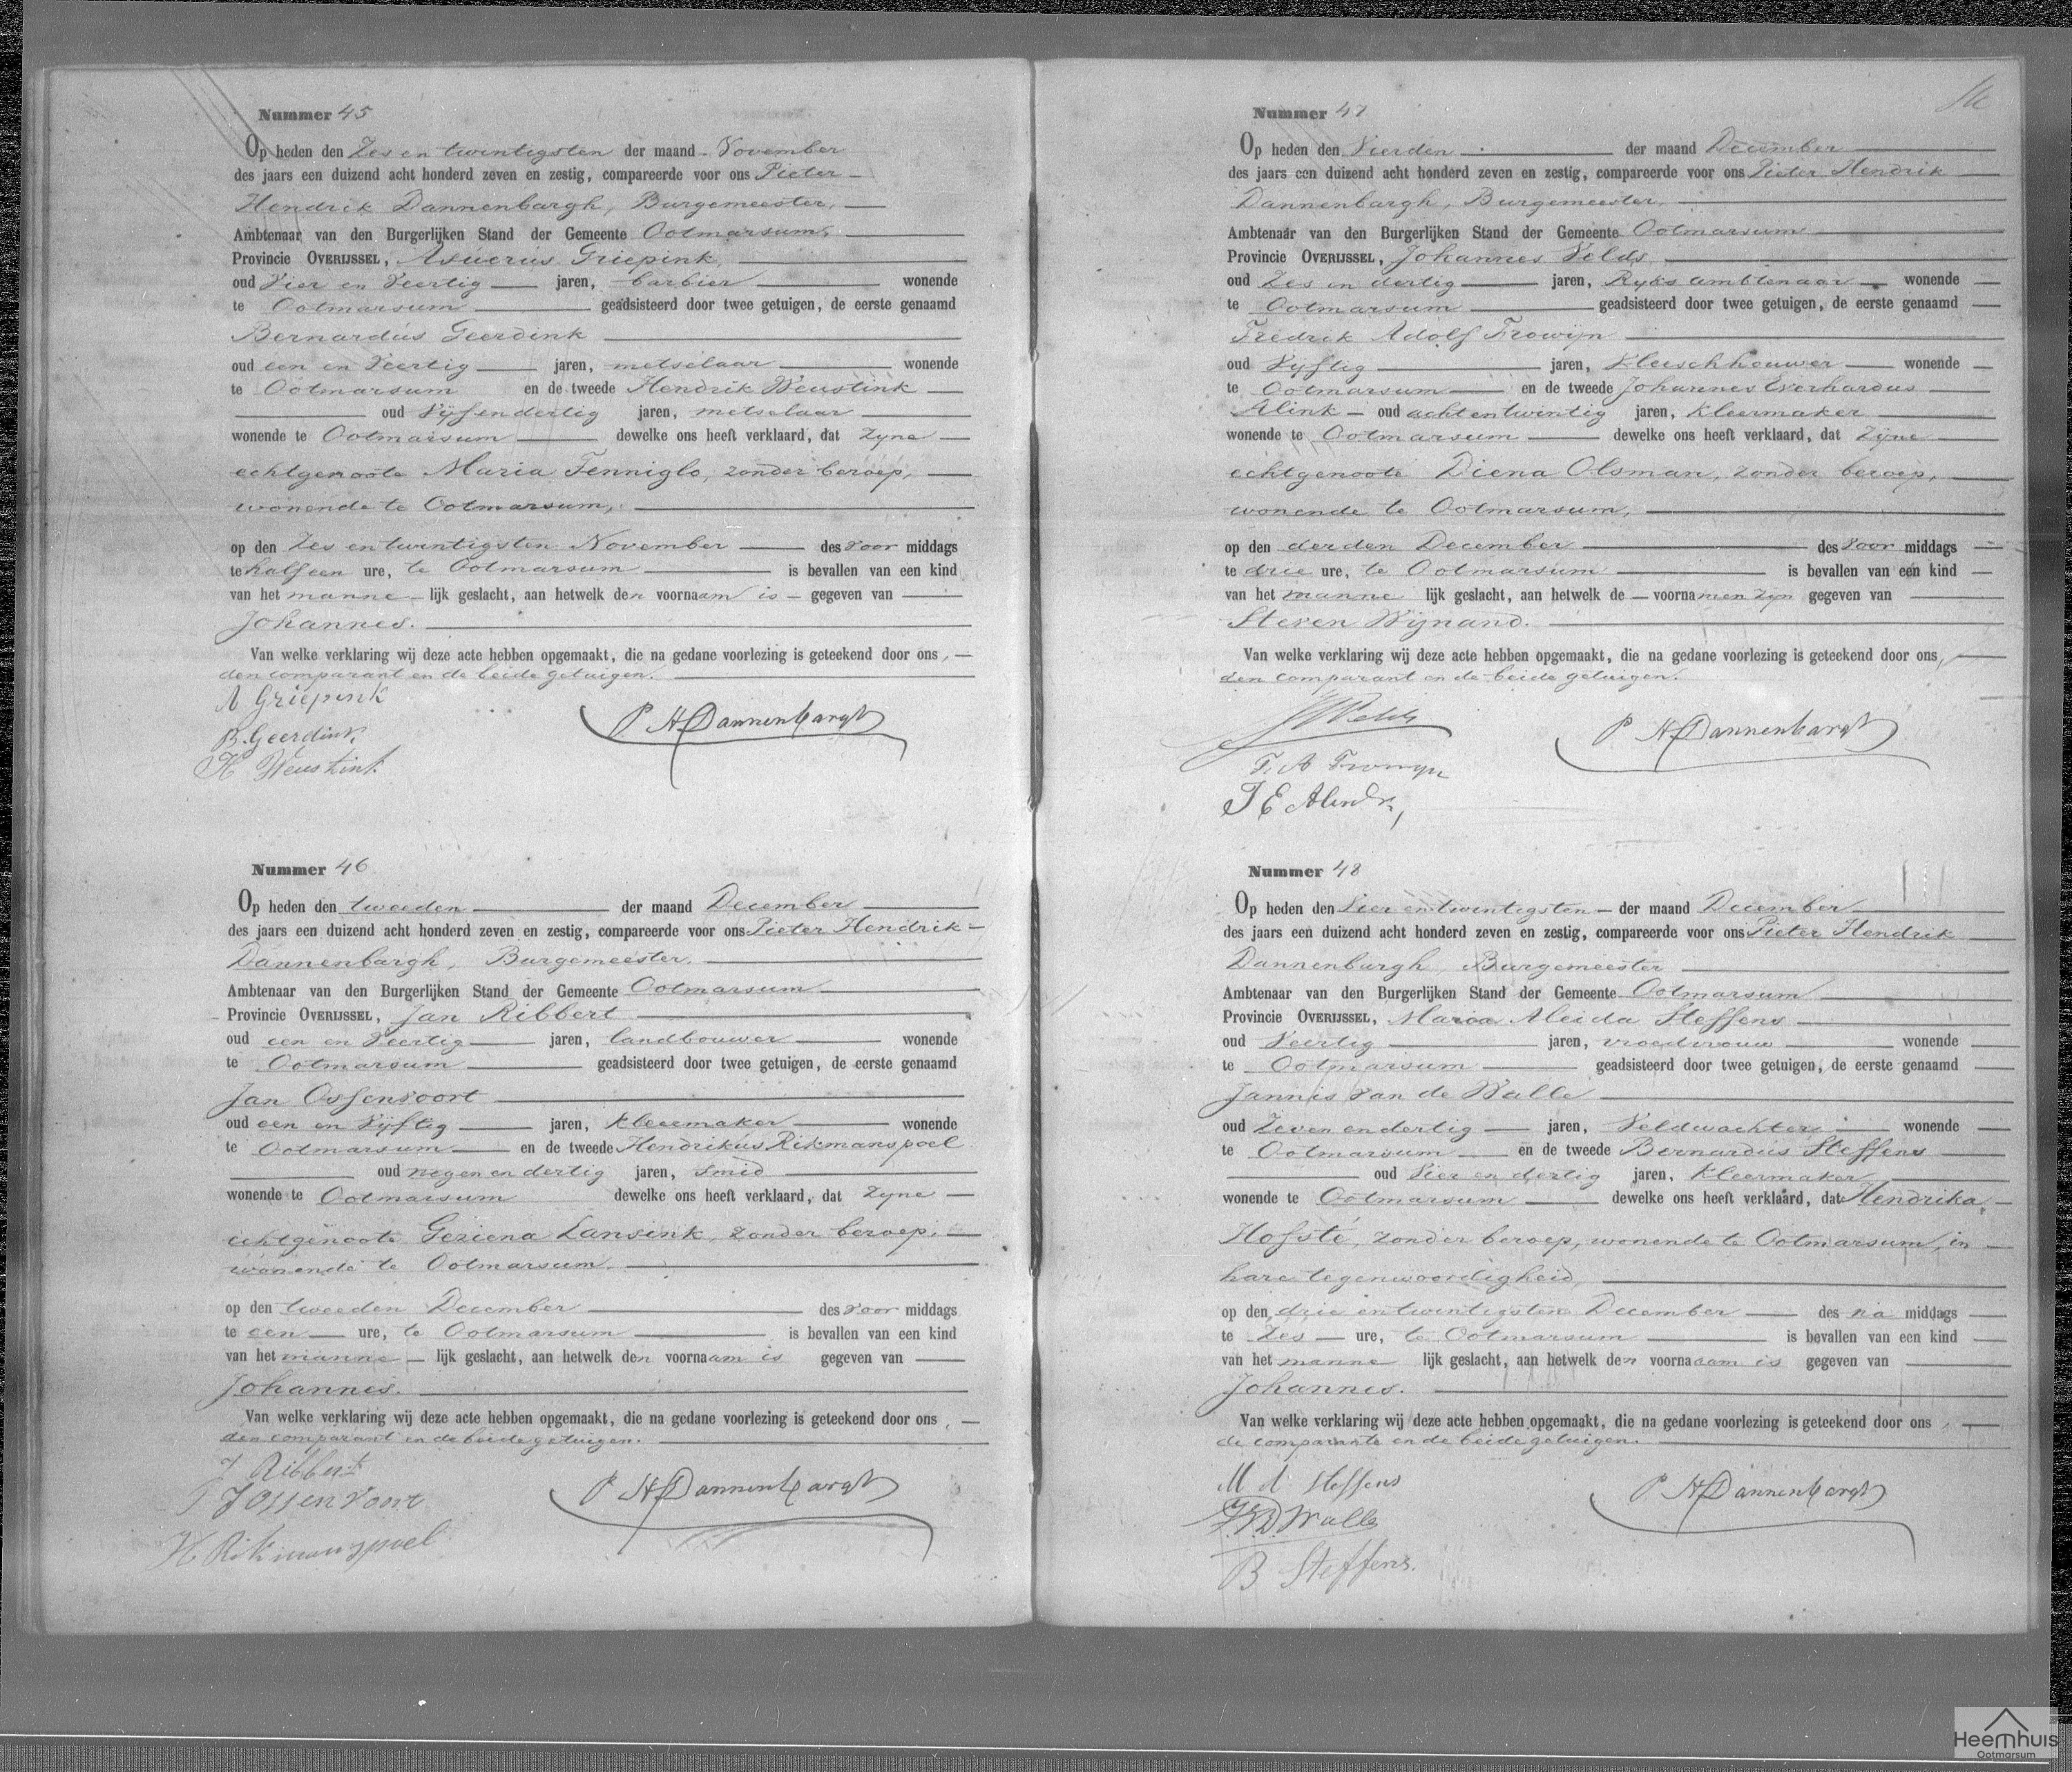 Nummer 45
Op heden den Zes en twintigsten der maand November
des jaars een duizend acht honderd zeven en zestig, compareerde voor ons Pieter
Hendrik Dannenbargh, Burgemeester,
Ambtenaar van den Burgerlijken Stand der Gemeente Ootmarsum,
Provincie OVERIJSSEL, Asuerus Griepink,
oud Vier en Veertig jaren, barbier wonende
te Ootmarsum geadsisteerd door twee getuigen, de eerste genaamd
Bernardus Geerdink
oud een en Veertig jaren, metselaar wonende
te Ootmarsum en de tweede Hendrik Weustink
oud Vijfendertig jaren, metselaar
wonende te Ootmarsum dewelke ons heeft verklaard, dat Zyne
echtgenoote Maria Tenniglo, zonder beroep,
wonende te Ootmarsum,
op den Zes en twintigsten November des Voor middags
te half een ure, te Ootmarsum is bevallen van een kind
van het manne lijk geslacht, aan hetwelk den voornaam is gegeven van
Johannes.
Van welke verklaring wij deze acte hebben opgemaakt, die na gedane voorlezing is geteekend door ons,
den comparant en de beide getuigen.
A Griepink
P H Dannenbargh
B. Geerdink
H Weustink
Nummer 46
Op heden den tweeden der maand December
des jaars een duizend acht honderd zeven en zestig, compareerde voor ons Pieter Hendrik
Dannenbargh, Burgemeester.
Ambtenaar van den Burgerlijken Stand der Gemeente Ootmarsum
Provincie OVERIJSSEL, Jan Ribbert
oud een en Veertig jaren, landbouwer wonende
te Ootmarsum geadsisteerd door twee getuigen, de eerste genaamd
Jan Ossenvoort
oud een en Vijftig jaren, kleermaker wonende
te Ootmarsum en de tweede Hendrikus Rikmanspoel
oud negen en dertig jaren, Smid
wonende te Ootmarsum dewelke ons heeft verklaard, dat Zyne
echtgenoote Geziena Lansink, zonder beroep,
wonende te Ootmarsum.
op den tweeden December des Voor middags
te een ure, te Ootmarsum is bevallen van een kind
van het manne lijk geslacht, aan hetwelk den voornaam is gegeven van
Johannes.
Van welke verklaring wij deze acte hebben opgemaakt, die na gedane voorlezing is geteekend door ons,
den comparant en de beide getuigen.
J Ribbert
P H Dannenbargh
J Ossenvoort
H Rikmanspoel
Nummer 47
Op heden den Vierden der maand December
des jaars een duizend acht honderd zeven en zestig, compareerde voor ons Pieter Hendrik
Dannenbargh, Burgemeester,
Ambtenaar van den Burgerlijken Stand der Gemeente Ootmarsum
Provincie OVERIJSSEL, Johannes Velds
oud Zes en dertig jaren, Ryks ambtenaar wonende
te Ootmarsum geadsisteerd door twee getuigen, de eerste genaamd
Fredrik Adolf Frowijn
oud Vijftig jaren, Vleeschhouwer wonende
te Ootmarsum en de tweede Johannes Everhardus
Alink oud acht en twintig jaren, kleermaker
wonende te Ootmarsum dewelke ons heeft verklaard, dat Zijne
echtgenoote Diena Olsman, zonder beroep,
wonende te Ootmarsum,
op den derden December des Voor middags
te drie ure, te Ootmarsum is bevallen van een kind
van het manne lijk geslacht, aan hetwelk de voornamen zyn gegeven van
Steven Wijnand.
Van welke verklaring wij deze acte hebben opgemaakt, die na gedane voorlezing is geteekend door ons,
den comparant en de beide getuigen.
J Velds
P H Dannenbargh
F. A Frowyn
J E Alink
Nummer 48
Op heden den Vier en twintigsten der maand December
des jaars een duizend acht honderd zeven en zestig, compareerde voor ons Pieter Hendrik
Dannenburgh, Burgemeester
Ambtenaar van den Burgerlijken Stand der Gemeente Ootmarsum
Provincie OVERIJSSEL, Maria Aleida Steffens
oud Veertig jaren, vroedvrouw wonende
te Ootmarsum geadsisteerd door twee getuigen, de eerste genaamd
Jannis van de Walle
oud Zeven en dertig jaren, Veldwachter wonende
te Ootmarsum en de tweede Bernardus Steffens
oud Vier en dertig jaren, kleermaker
wonende te Ootmarsum dewelke ons heeft verklaard, dat Hendrika
Hofsté, zonder beroep, wonende te Ootmarsum, in
hare tegenwoordigheid,
op den drie en twintigsten December des na middags
te Zes ure, te Ootmarsum is bevallen van een kind
van het manne lijk geslacht, aan hetwelk den voornaam is gegeven van
Johannes.
Van welke verklaring wij deze acte hebben opgemaakt, die na gedane voorlezing is geteekend door ons,
de comparante en de beide getuigen.
M A Steffens
P H Dannenbargh
J.V.D. Walle
B Steffens.
Heemhuis
Ootmarsum